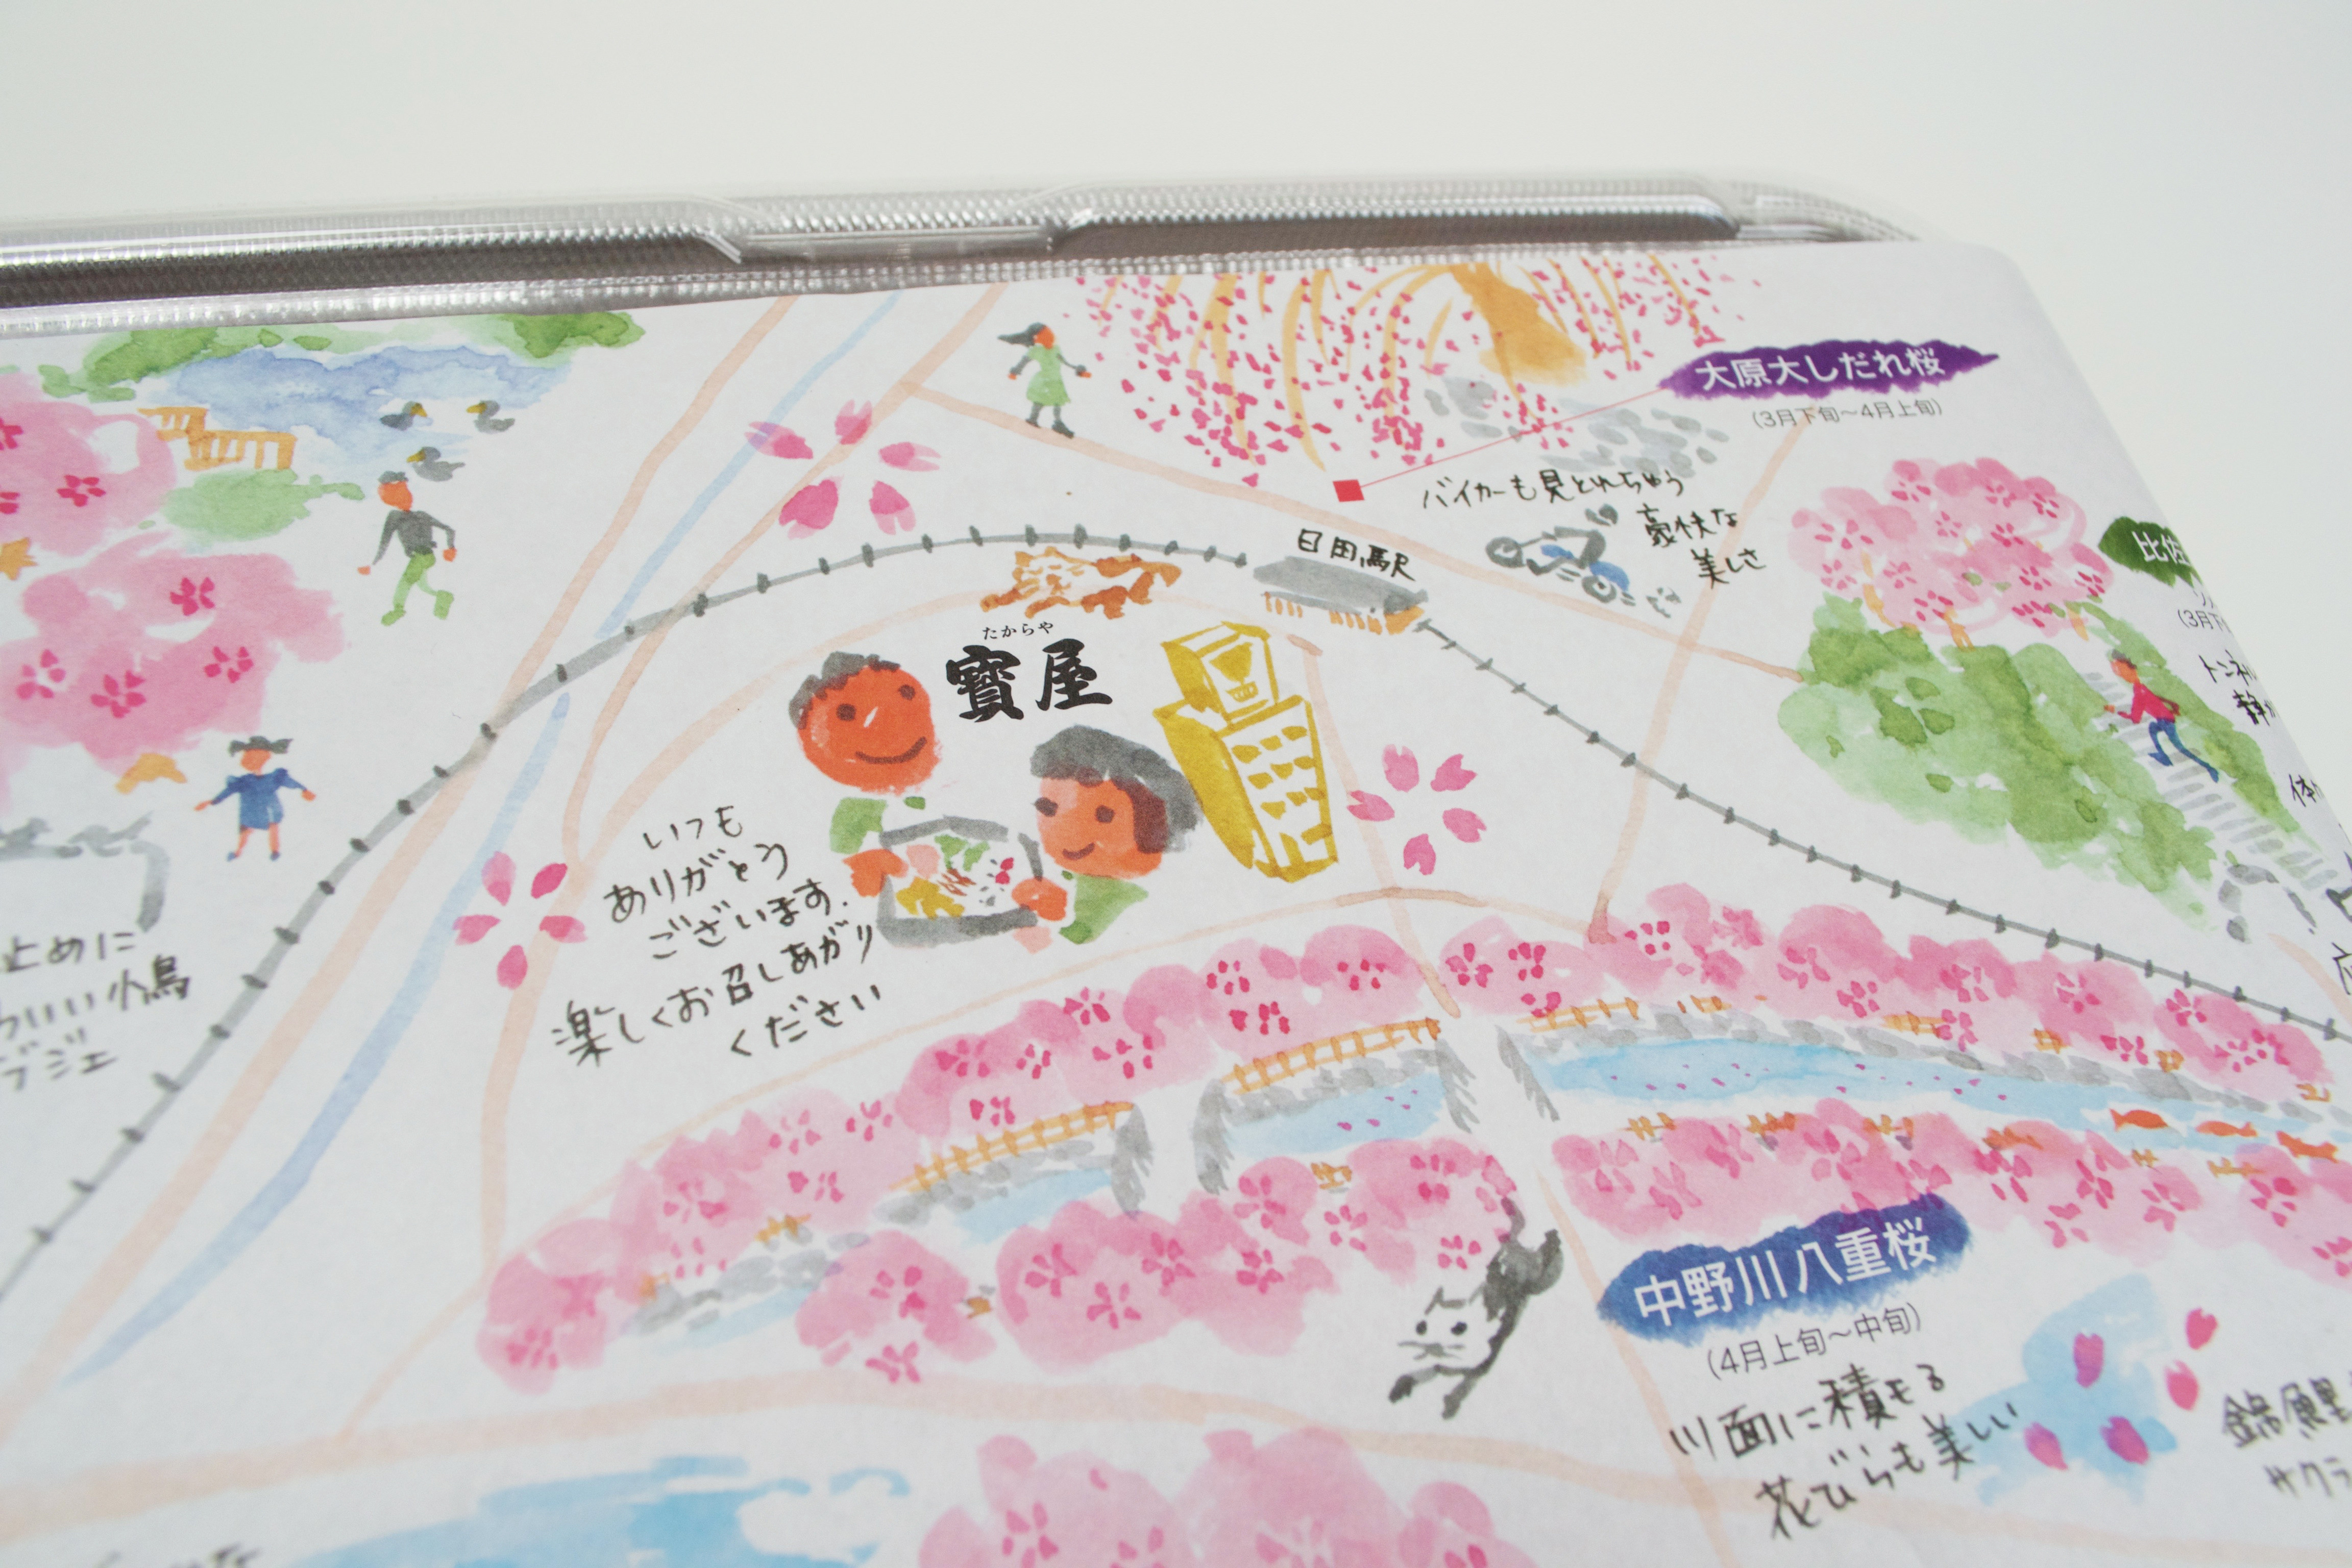 大原大しだれ桜
（3月下旬～4月上旬）
バイカーも見とれちゃう
豪快な
美しさ
日田駅
比佐
（3月下
トンネル
静か
たからや
寳屋
いつも
ありがとう
ございます.
楽しくお召しあがり
ください
止めに
いい小鳥
ブジェ
中野川 八重桜
（4月上旬～中旬）
川面に積もる
花びらも美しい
サクラ